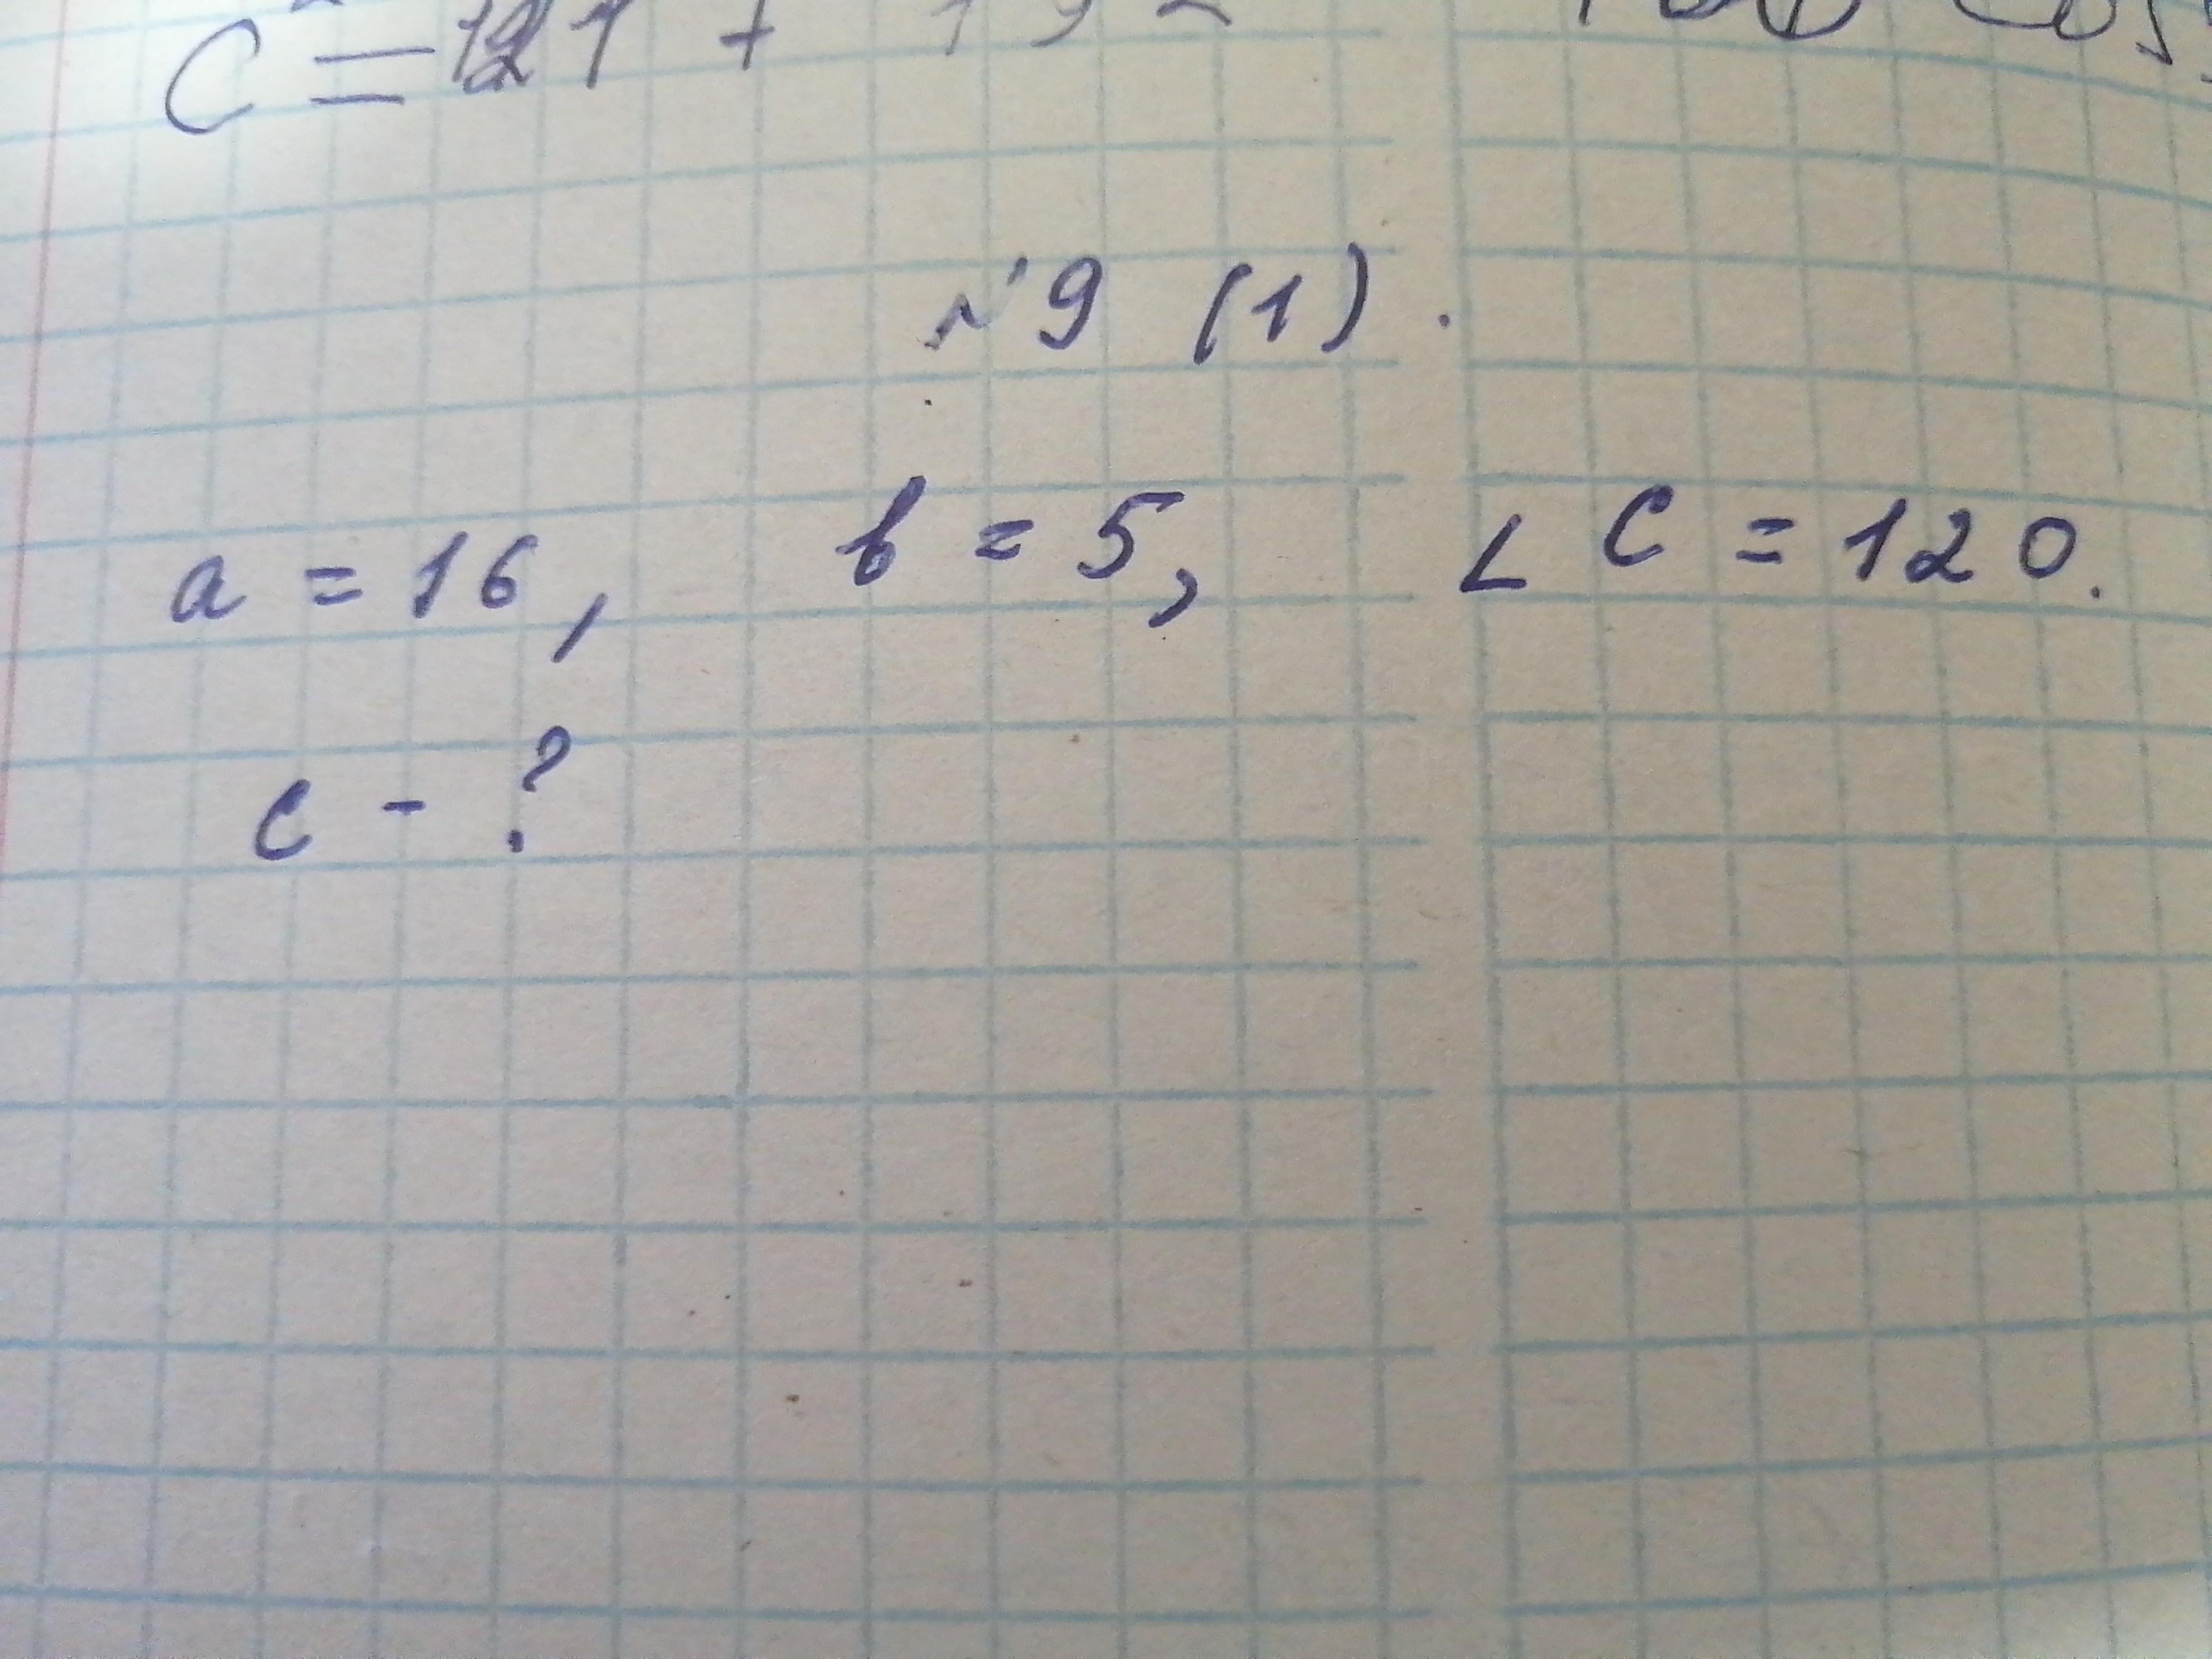 C = 121 +
№9 (1).
a = 16, b = 5, ∠ C = 120.
c - ?